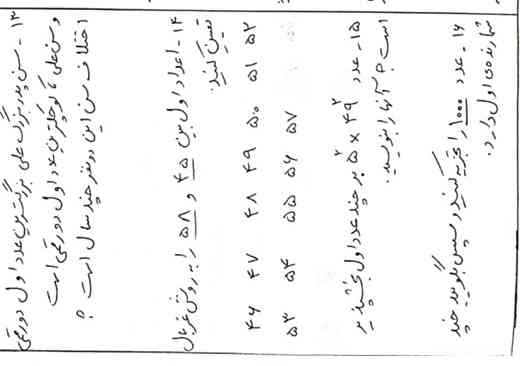 ۱۳ - سن پدربزرگ علی بزرگترین عدد اول دو رقمی
و سن علی کوچکترین عدد اول دو رقمی است
اختلاف سن این دو نفر چند سال است ؟
۱۴ - اعداد اول بین ۴۵ و ۵۸ را به روش غربال
تعیین کنید.
۴۶ ۴۷ ۴۸ ۴۹ ۵۰ ۵۱ ۵۲
۵۳ ۵۴ ۵۵ ۵۶ ۵۷
۱۵ - عدد ۴۹² × ۵² بر چند عدد اول بخش پذیر
است ؟ آنها را بنویسید.
۱۶ - عدد ۱۰۰۰ را تجزیه کنید و سپس بگویید چند
شمارنده ی اول دارد.